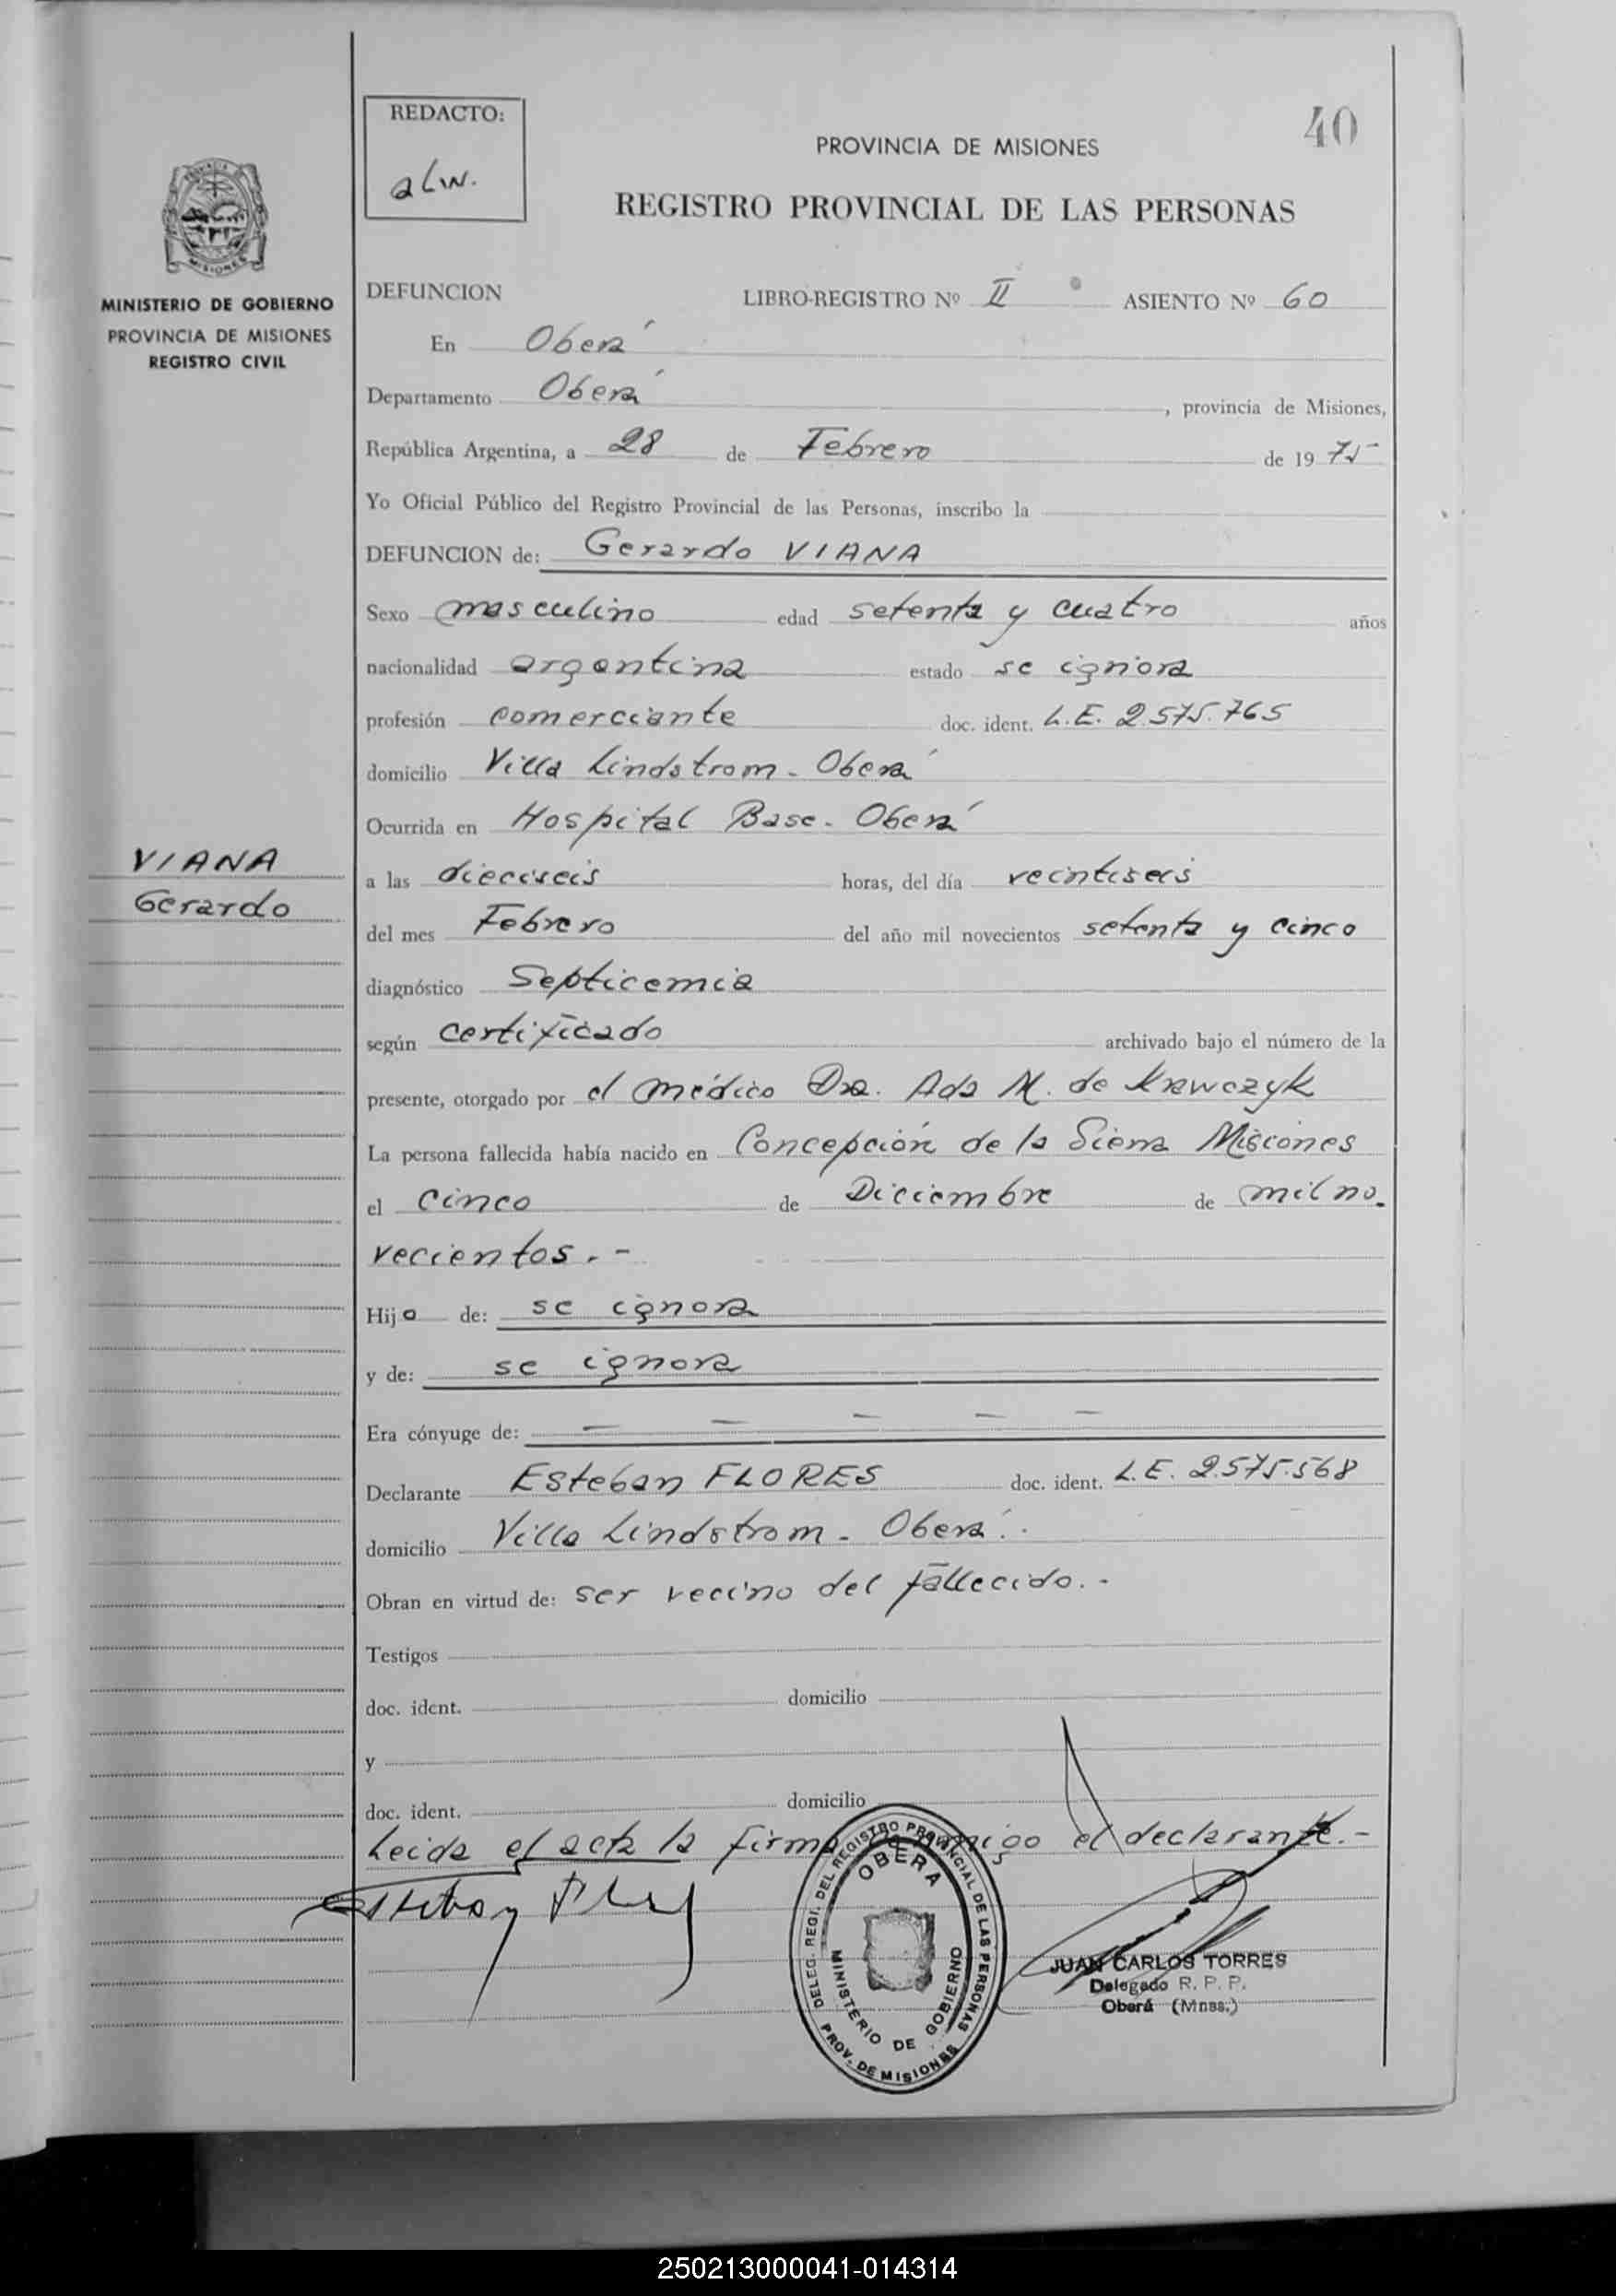 REDACTO:
aLW.
40
PROVINCIA DE MISIONES
REGISTRO PROVINCIAL DE LAS PERSONAS
MISIONES
MINISTERIO DE GOBIERNO
PROVINCIA DE MISIONES
REGISTRO CIVIL
DEFUNCION LIBRO-REGISTRO Nº II ASIENTO Nº 60
En Oberá
Departamento Oberá, provincia de Misiones,
República Argentina, a 28 de Febrero de 1975
Yo Oficial Público del Registro Provincial de las Personas, inscribo la
DEFUNCION de: Gerardo VIANA
Sexo masculino edad setenta y cuatro años
nacionalidad argentina estado se ignora
profesión comerciante doc. ident. L.E. 2.575.765
domicilio Villa Lindstrom - Oberá
Ocurrida en Hospital Base - Oberá
VIANA
Gerardo
a las dieciseis horas, del día veintiseis
del mes Febrero del año mil novecientos setenta y cinco
diagnóstico Septicemia
según certificado archivado bajo el número de la
presente, otorgado por el médico Dra. Ada M. de Krawczyk
La persona fallecida había nacido en Concepción de la Sierra Misiones
el cinco de Diciembre de mil no-
vecientos.-
Hijo de: se ignora
y de: se ignora
Era cónyuge de: — — — — —
Declarante Esteban FLORES doc. ident. L.E. 2.575.568
domicilio Villa Lindstrom - Oberá.
Obran en virtud de: ser vecino del fallecido.-
Testigos
doc. ident. domicilio
y
doc. ident. domicilio
Leida el acta la firma conmigo el declarante.-
Esteban Flores
DELEG. REGI. DEL REGISTRO PROVINCIAL DE LAS PERSONAS
OBERA
MINISTERIO DE GOBIERNO
PROV. DE MISIONES
JUAN CARLOS TORRES
Delegado R. P. P.
Oberá (Mnes.)
250213000041-014314